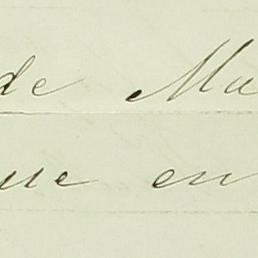 de Ma
ue en